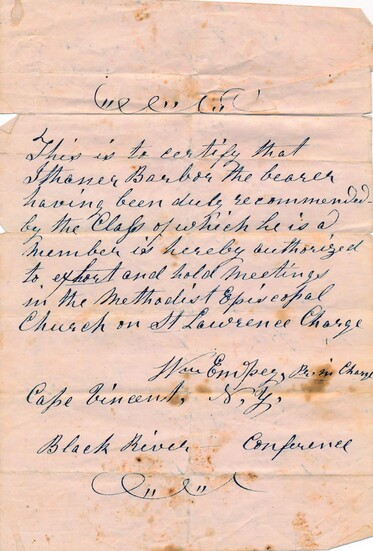 This is to certify that
Ithaner Barbor the bearer
having been duly recommended
by the Class of which he is a
member is hereby authorized
to exhort and hold meetings
in the Methodist Episcopal
Church on St Lawrence Charge
Wm Empey, Pr. in Charge
Cape Vincent, N.Y.
Black River Conference